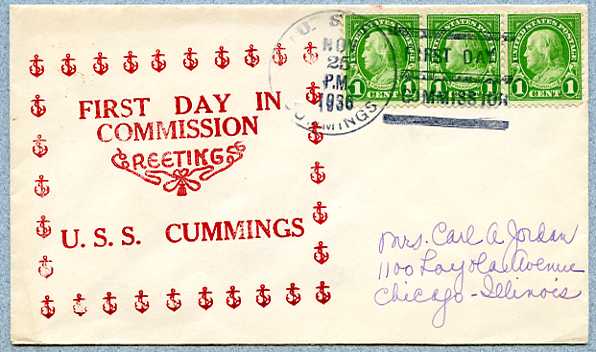 FIRST DAY IN
COMMISSION
GREETINGS
U. S. S. CUMMINGS
U. S.
NOV
25
P.M.
1936
CUMMINGS
FIRST DAY
COMMISSION
UNITED STATES POSTAGE
1 CENT 1
UNITED STATES POSTAGE
1 CENT 1
UNITED STATES POSTAGE
1 CENT 1
Mrs. Carl A. Jordan
1100 Loyola Avenue
Chicago - Illinois